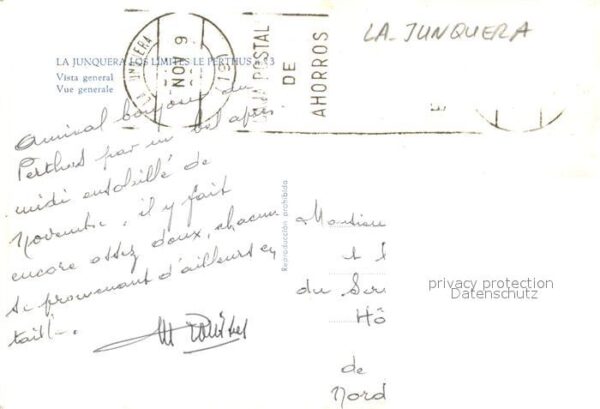 LA JUNQUERA
LA JUNQUERA LOS LIMITES LE PERTHUS
Vista general
Vue generale
JUNQUERA
NOV
9
CAJA POSTAL
DE
AHORROS
Amical bonjour du
Perthus par un bel après
midi ensoleillé de
Novembre, il y fait
encore assez doux, chacun
se promenant d'ailleurs en
M
Reproducción prohibida
Monsieur
du
Hô
de
Nord
privacy protection
Datenschutz